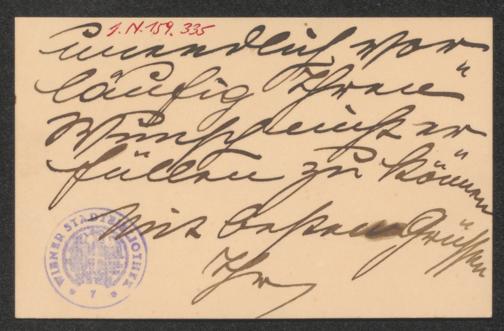 J.N. 159.335
unendlich vor
läufig Ihren
Wunsch nicht er
füllen zu können
Mit besten Grüssen
Ihr
WIENER STADTBIBLIOTHEK
* 7 *